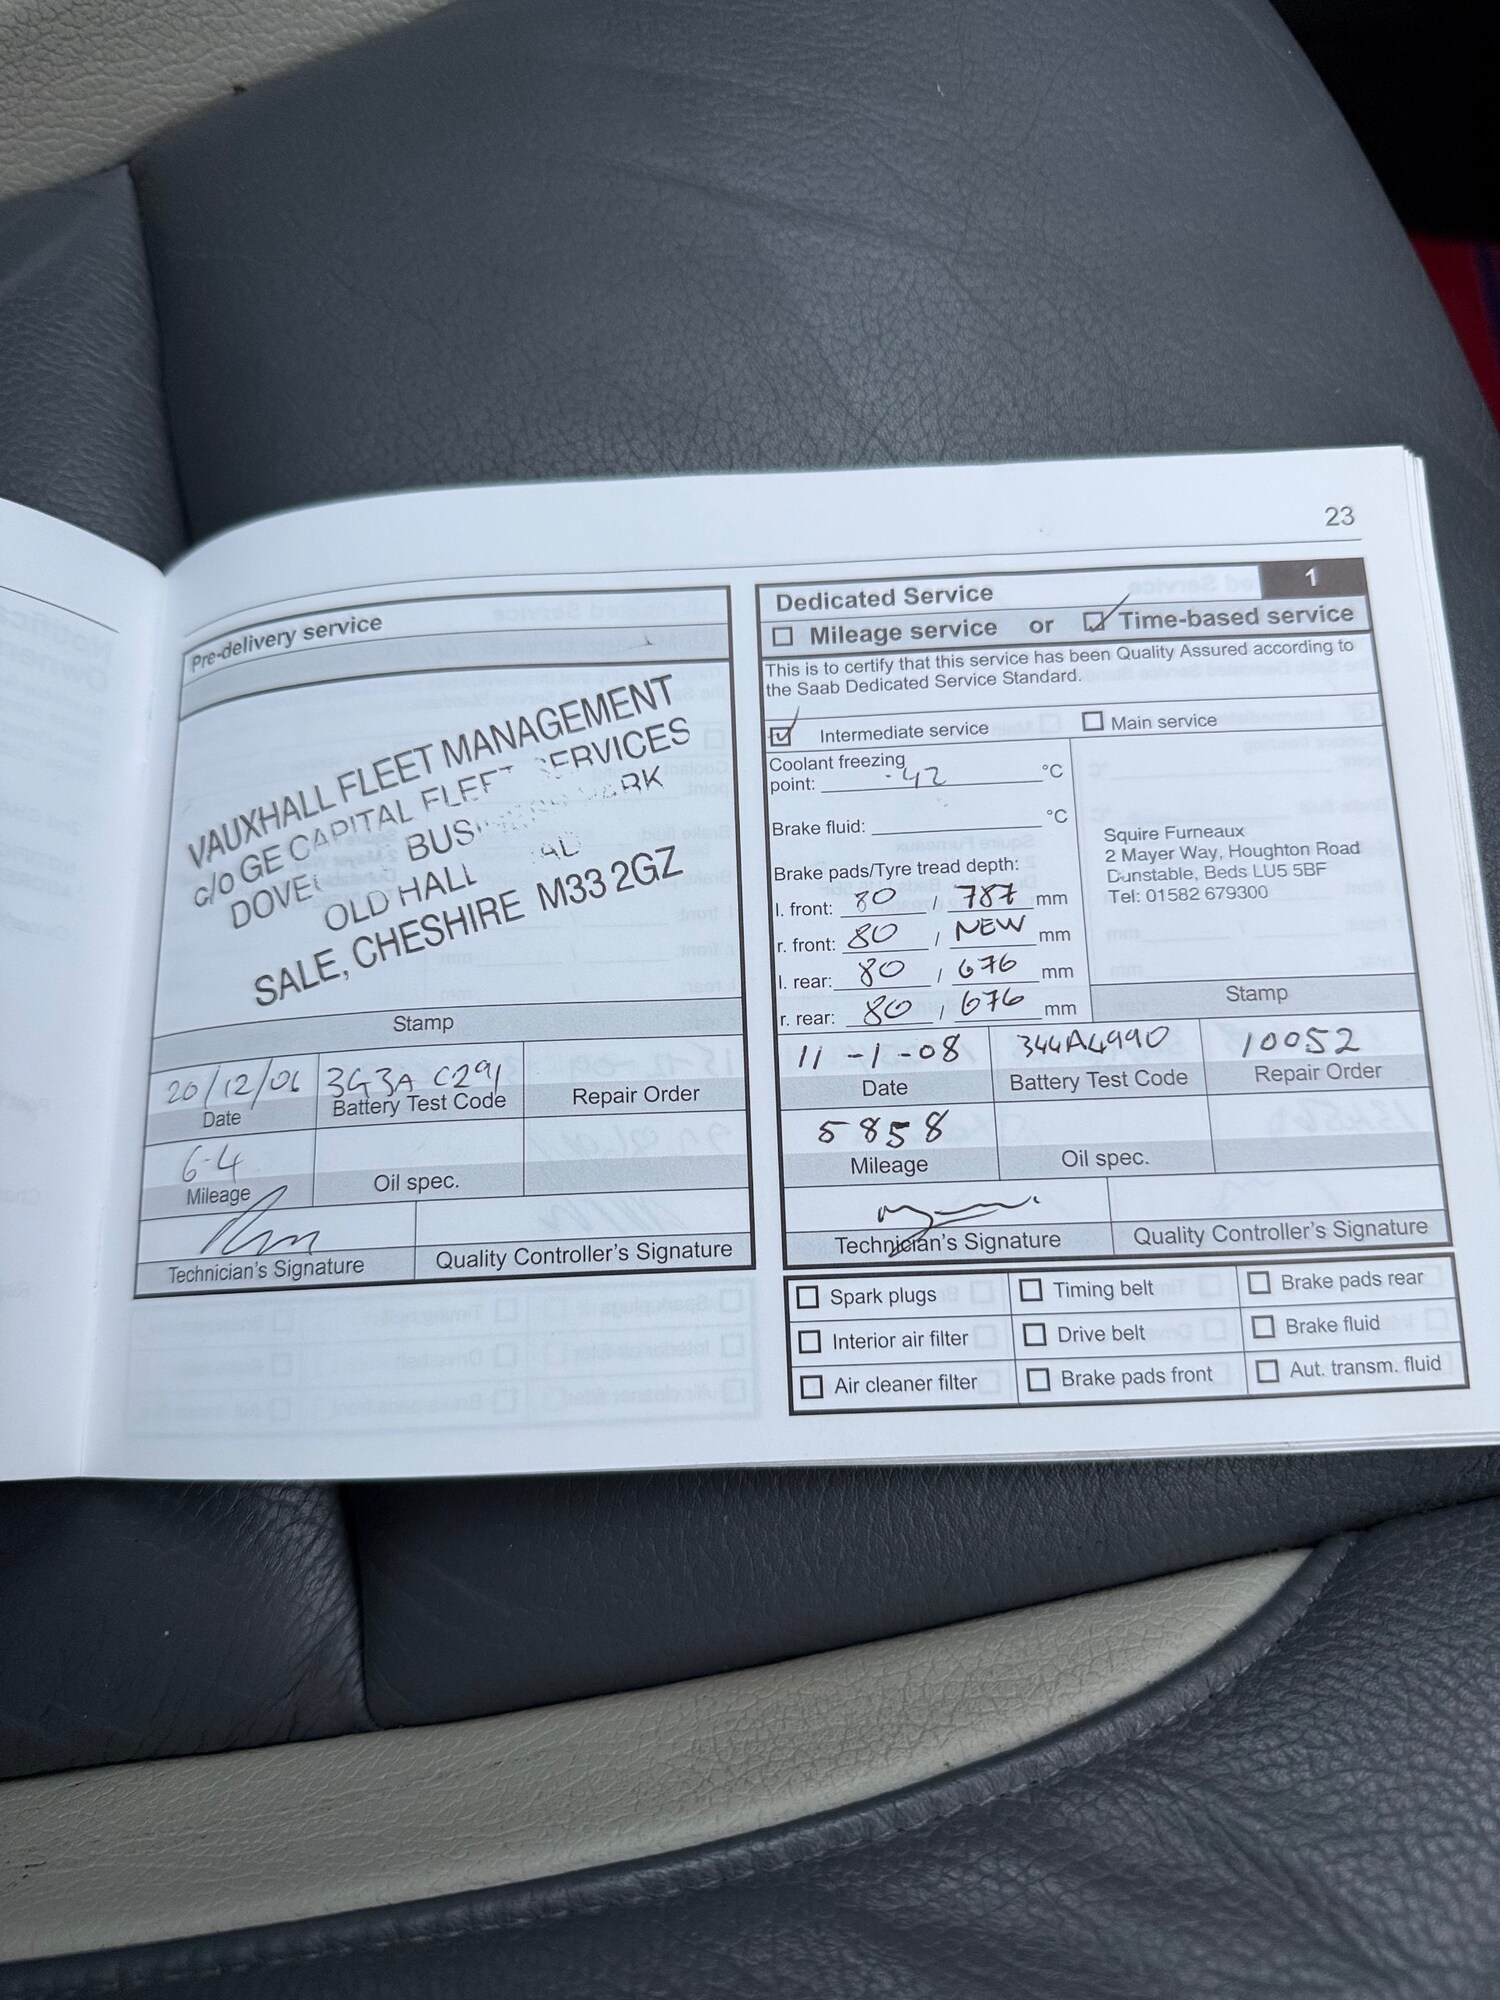 23
Pre-delivery service
VAUXHALL FLEET MANAGEMENT
c/o GE CAPITAL FLEET SERVICES
OLD HALL
SALE, CHESHIRE M33 2GZ
Stamp
20/12/06
Date
3G3A C291
Battery Test Code
Repair Order
6-4
Mileage
Oil spec.
Technician's Signature
Quality Controller's Signature
Dedicated Service
1
Mileage service or Time-based service
This is to certify that this service has been Quality Assured according to
the Saab Dedicated Service Standard.
Intermediate service
Main service
Coolant freezing
point: -42 °C
Brake fluid: °C
Brake pads/Tyre tread depth:
l. front: 80 / 787 mm
r. front: 80 / NEW mm
l. rear: 80 / 676 mm
r. rear: 80 / 676 mm
Squire Furneaux
2 Mayer Way, Houghton Road
Dunstable, Beds LU5 5BF
Tel: 01582 679300
Stamp
11-1-08
Date
344A4990
Battery Test Code
10052
Repair Order
5858
Mileage
Oil spec.
Technician's Signature
Quality Controller's Signature
Spark plugs
Timing belt
Brake pads rear
Interior air filter
Drive belt
Brake fluid
Air cleaner filter
Brake pads front
Aut. transm. fluid